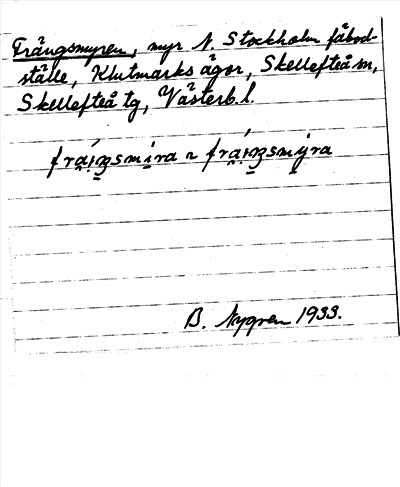 Frängsmyren, myr N. Stockholm fäbod-
ställe, Klutmarks ägor, Skellefteå sn,
Skellefteå tg, Västerb. l.
fräŋsmira ~ fräŋsmyra
B. Nygren 1933.